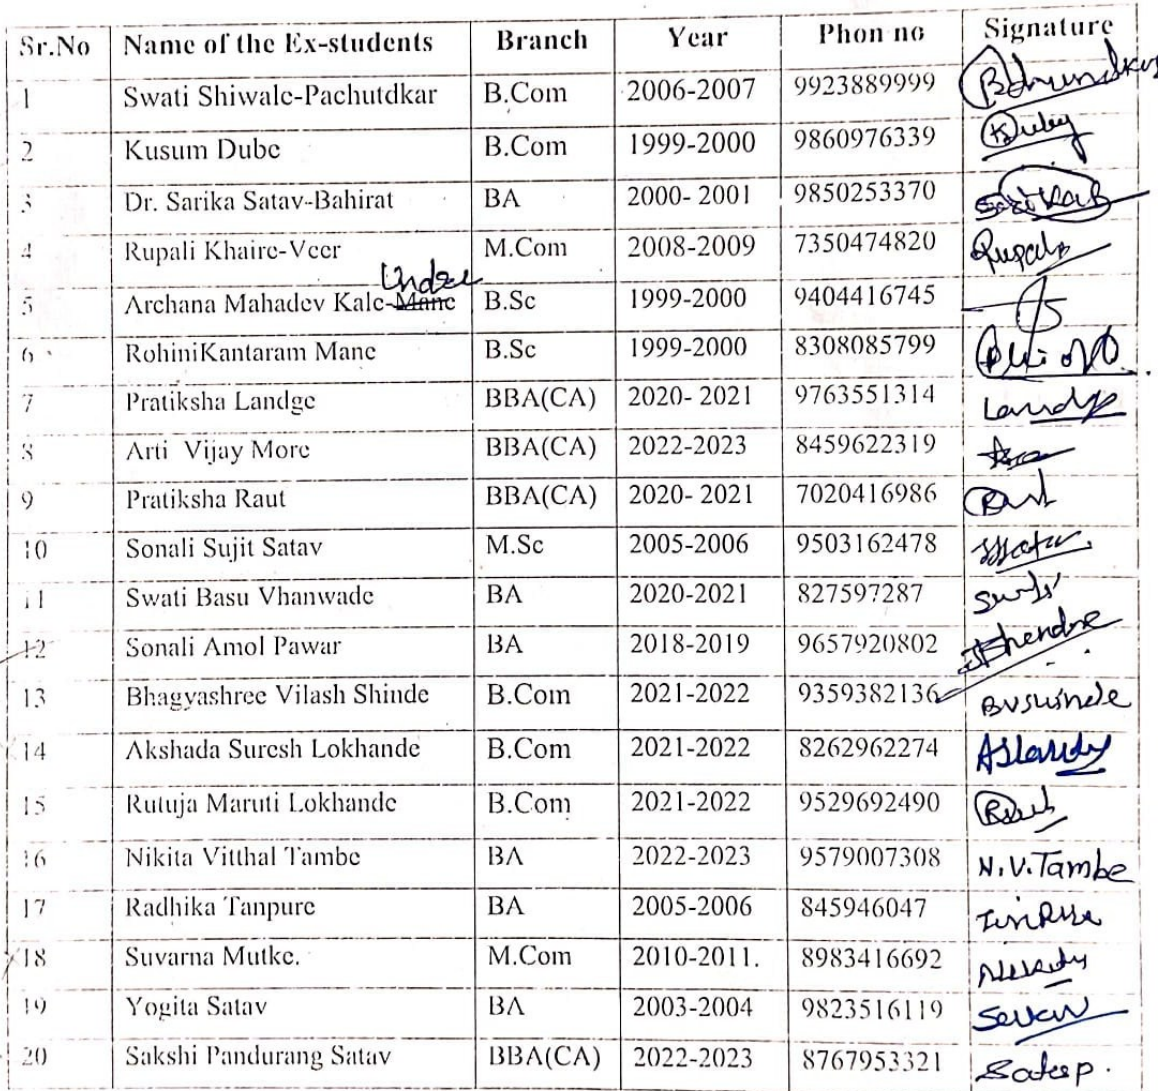 Sr.No Name of the Ex-students Branch Year Phon no Signature
1 Swati Shiwale-Pachutdkar B.Com 2006-2007 9923889999
2 Kusum Dube B.Com 1999-2000 9860976339
3 Dr. Sarika Satav-Bahirat BA 2000- 2001 9850253370
4 Rupali Khaire-Veer M.Com 2008-2009 7350474820
5 Archana Mahadev Kale-Mane B.Sc 1999-2000 9404416745
6 RohiniKantaram Mane B.Sc 1999-2000 8308085799
7 Pratiksha Landge BBA(CA) 2020- 2021 9763551314 Landge
8 Arti Vijay More BBA(CA) 2022-2023 8459622319
9 Pratiksha Raut BBA(CA) 2020- 2021 7020416986
10 Sonali Sujit Satav M.Sc 2005-2006 9503162478
11 Swati Basu Vhanwade BA 2020-2021 827597287
12 Sonali Amol Pawar BA 2018-2019 9657920802
13 Bhagyashree Vilash Shinde B.Com 2021-2022 9359382136 BVShinde
14 Akshada Suresh Lokhande B.Com 2021-2022 8262962274
15 Rutuja Maruti Lokhande B.Com 2021-2022 9529692490
16 Nikita Vitthal Tambe BA 2022-2023 9579007308 N.V.Tambe
17 Radhika Tanpure BA 2005-2006 845946047
18 Suvarna Mutke. M.Com 2010-2011. 8983416692
19 Yogita Satav BA 2003-2004 9823516119
20 Sakshi Pandurang Satav BBA(CA) 2022-2023 8767953321